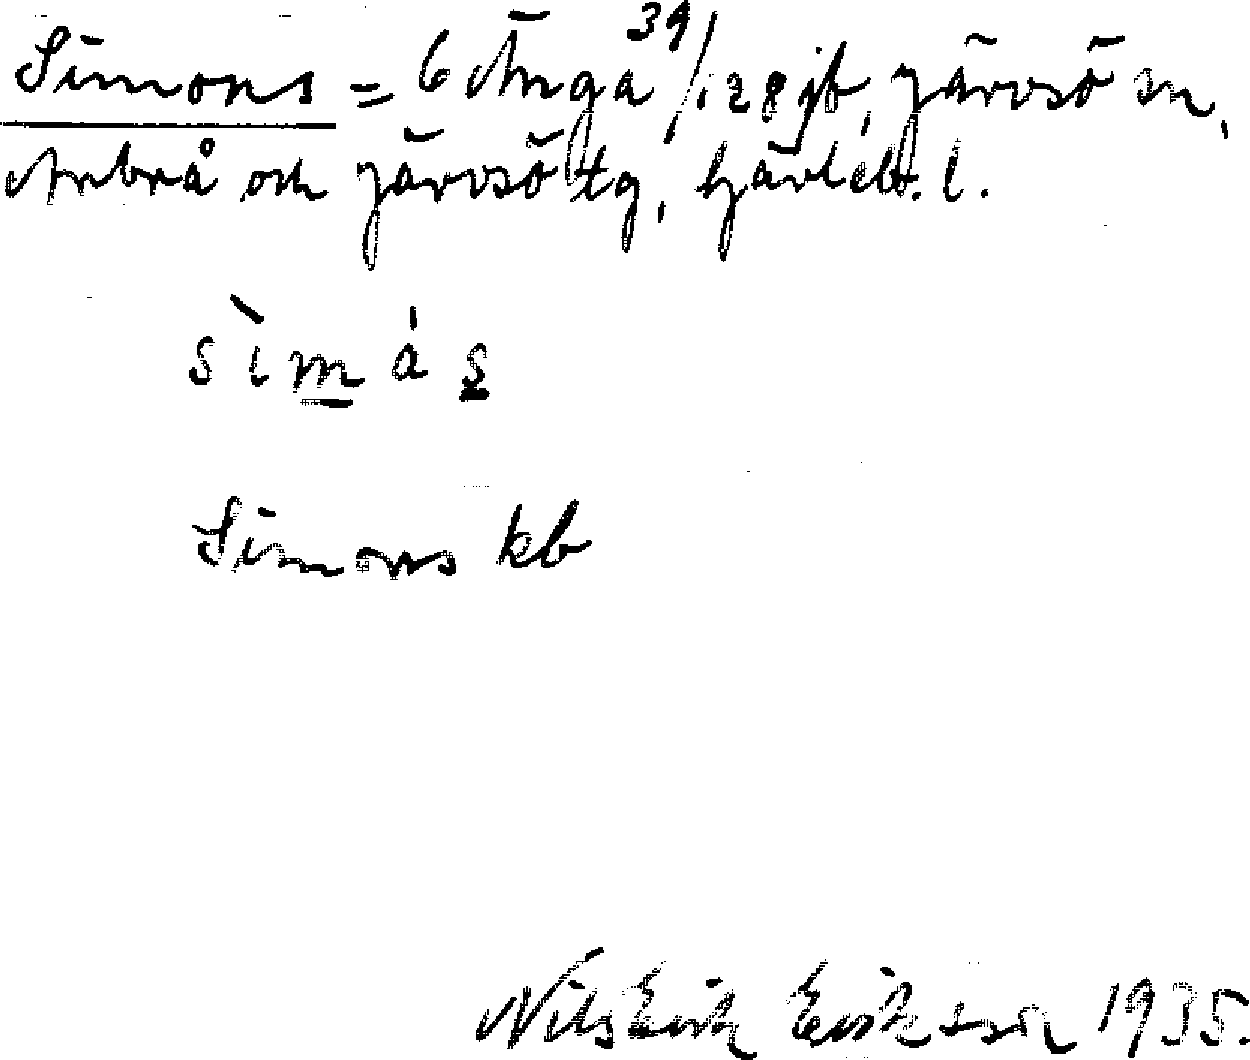 Simons = 6 Änga 39/128 jb, Järvsö sn,
Arbrå och Järvsö tg, Gävleb. l.
sìmás
Simons kb
Nils Erik Eriksson 1935.